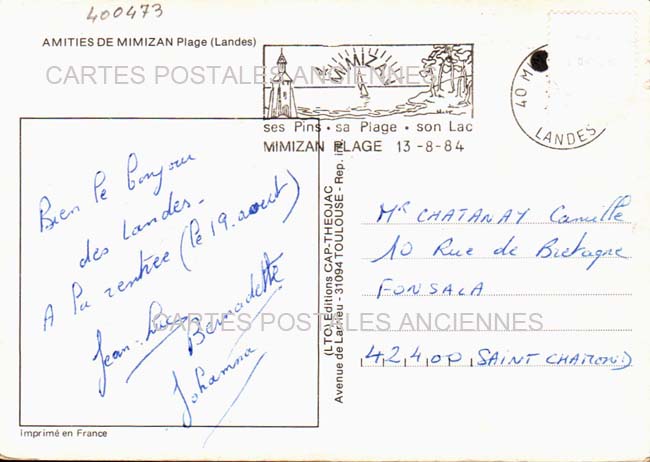 400473
AMITIES DE MIMIZAN Plage (Landes)
CARTES POSTALES ANCIENNES
MIMIZAN
ses Pins • sa Plage • son Lac
MIMIZAN PLAGE 13-8-84
40 M
LANDES
Bien le bonjour
des Landes.
A la rentrée (le 19. aout)
Jean-Luc
Bernadette
Johanna
imprimé en France
(LTO) Editions CAP-THEOJAC
Avenue de Larrieu - 31094 TOULOUSE - Rep. Int.
Mr CHATANAY Camille
10 Rue de Bretagne
FONSALA
CARTES POSTALES ANCIENNES
42400 SAINT CHAMOND